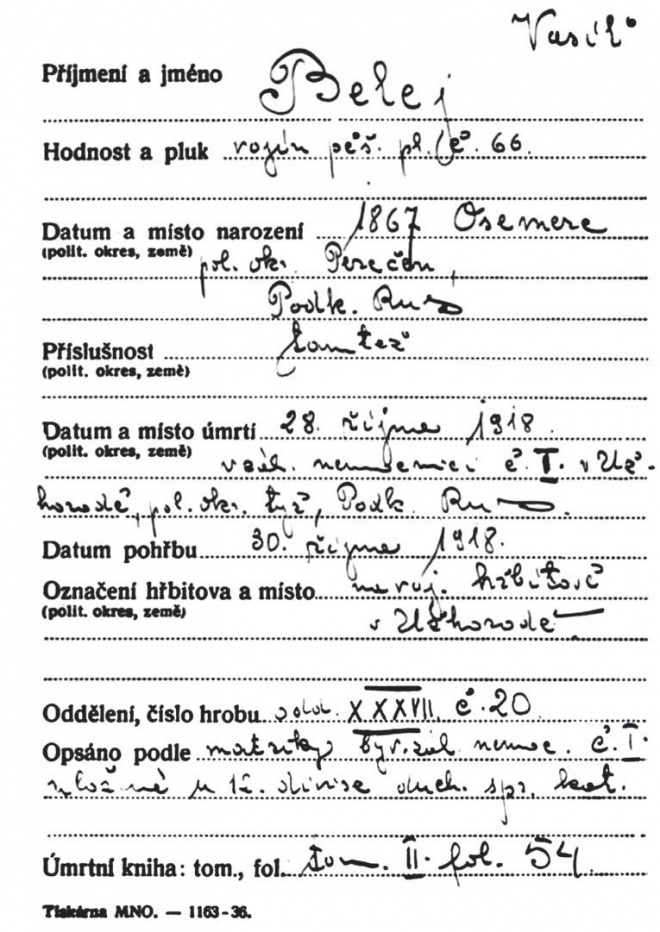 Vasil
Příjmení a jméno Belej
Hodnost a pluk vojín pěš. pl. č. 66.
Datum a místo narození 1867 Osemere
(polit. okres, země) pol. ok. Perečen,
Podk. Rus
Příslušnost tamtéž
(polit. okres, země)
Datum a místo úmrtí 28. října 1918.
(polit. okres, země) v zál. nemocnici č. I. v Už-
horodě, pol. ok. týž, Podk. Rus.
Datum pohřbu 30. října 1918.
Označení hřbitova a místo na voj. hřbitově
(polit. okres, země) v Užhorodě
Oddělení, číslo hrobu odd. XXXVII. č. 20
Opsáno podle matriky býv. zál. nemoc. č. I.
uložené u 12. divise duch. spr. kat.
Úmrtní kniha: tom., fol. tom. II. fol. 54.
Tiskárna MNO. — 1163-36.